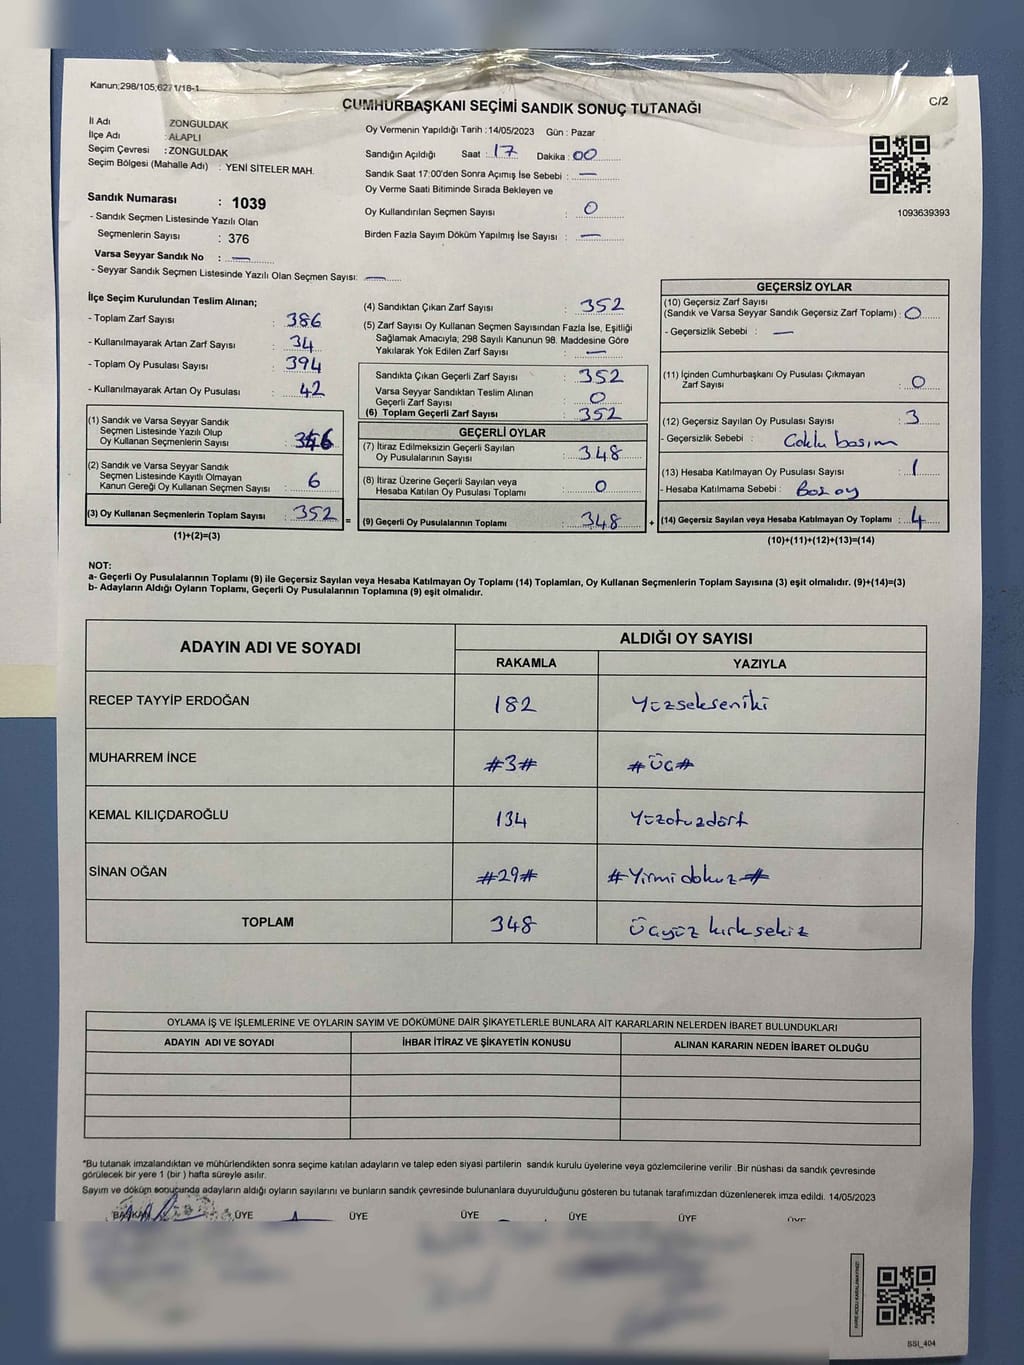 Kanun;298/105;6271/18-1
C/2
CUMHURBAŞKANI SEÇİMİ SANDIK SONUÇ TUTANAĞI
İl Adı ZONGULDAK
İlçe Adı : ALAPLI
Seçim Çevresi : ZONGULDAK
Seçim Bölgesi (Mahalle Adı) : YENİ SİTELER MAH.
Sandık Numarası : 1039
- Sandık Seçmen Listesinde Yazılı Olan
Seçmenlerin Sayısı : 376
Varsa Seyyar Sandık No : —
- Seyyar Sandık Seçmen Listesinde Yazılı Olan Seçmen Sayısı: —
Oy Vermenin Yapıldığı Tarih : 14/05/2023 Gün : Pazar
Sandığın Açıldığı Saat : 17 Dakika : 00
Sandık Saat 17:00'den Sonra Açımış İse Sebebi : —
Oy Verme Saati Bitiminde Sırada Bekleyen ve
Oy Kullandırılan Seçmen Sayısı : 0
Birden Fazla Sayım Döküm Yapılmış İse Sayısı : —
1093639393
İlçe Seçim Kurulundan Teslim Alınan;
- Toplam Zarf Sayısı : 386
- Kullanılmayarak Artan Zarf Sayısı : 34
- Toplam Oy Pusulası Sayısı : 394
- Kullanılmayarak Artan Oy Pusulası : 42
(1) Sandık ve Varsa Seyyar Sandık
Seçmen Listesinde Yazılı Olup
Oy Kullanan Seçmenlerin Sayısı : 346
(2) Sandık ve Varsa Seyyar Sandık
Seçmen Listesinde Kayıtlı Olmayan
Kanun Gereği Oy Kullanan Seçmen Sayısı : 6
(3) Oy Kullanan Seçmenlerin Toplam Sayısı : 352 =
(1)+(2)=(3)
(4) Sandıktan Çıkan Zarf Sayısı : 352
(5) Zarf Sayısı Oy Kullanan Seçmen Sayısından Fazla İse, Eşitliği
Sağlamak Amacıyla; 298 Sayılı Kanunun 98. Maddesine Göre
Yakılarak Yok Edilen Zarf Sayısı : —
Sandıkta Çıkan Geçerli Zarf Sayısı : 352
Varsa Seyyar Sandıktan Teslim Alınan
Geçerli Zarf Sayısı : 0
(6) Toplam Geçerli Zarf Sayısı : 352
GEÇERLİ OYLAR
(7) İtiraz Edilmeksizin Geçerli Sayılan
Oy Pusulalarının Sayısı : 348
(8) İtiraz Üzerine Geçerli Sayılan veya
Hesaba Katılan Oy Pusulası Toplamı : 0
(9) Geçerli Oy Pusulalarının Toplamı : 348 +
GEÇERSİZ OYLAR
(10) Geçersiz Zarf Sayısı
(Sandık ve Varsa Seyyar Sandık Geçersiz Zarf Toplamı) : 0
- Geçersizlik Sebebi : —
(11) İçinden Cumhurbaşkanı Oy Pusulası Çıkmayan
Zarf Sayısı : 0
(12) Geçersiz Sayılan Oy Pusulası Sayısı : 3
- Geçersizlik Sebebi : Coklu basım
(13) Hesaba Katılmayan Oy Pusulası Sayısı : 1
- Hesaba Katılmama Sebebi : Boş oy
(14) Geçersiz Sayılan veya Hesaba Katılmayan Oy Toplamı : 4
(10)+(11)+(12)+(13)=(14)
NOT:
a- Geçerli Oy Pusulalarının Toplamı (9) ile Geçersiz Sayılan veya Hesaba Katılmayan Oy Toplamı (14) Toplamları, Oy Kullanan Seçmenlerin Toplam Sayısına (3) eşit olmalıdır. (9)+(14)=(3)
b- Adayların Aldığı Oyların Toplamı, Geçerli Oy Pusulalarının Toplamına (9) eşit olmalıdır.
ADAYIN ADI VE SOYADI ALDIĞI OY SAYISI
RAKAMLA YAZIYLA
RECEP TAYYİP ERDOĞAN 182 Yüzsekseniki
MUHARREM İNCE #3# #Üç#
KEMAL KILIÇDAROĞLU 134 Yüzotuzdört
SİNAN OĞAN #29# #Yirmi dokuz#
TOPLAM 348 Üçyüz kırk sekiz
OYLAMA İŞ VE İŞLEMLERİNE VE OYLARIN SAYIM VE DÖKÜMÜNE DAİR ŞİKAYETLERLE BUNLARA AİT KARARLARIN NELERDEN İBARET BULUNDUKLARI
ADAYIN ADI VE SOYADI İHBAR İTİRAZ VE ŞİKAYETİN KONUSU ALINAN KARARIN NEDEN İBARET OLDUĞU
*Bu tutanak imzalandıktan ve mühürlendikten sonra seçime katılan adayların ve talep eden siyasi partilerin sandık kurulu üyelerine veya gözlemcilerine verilir .Bir nüshası da sandık çevresinde
görülecek bir yere 1 (bir ) hafta süreyle asılır.
Sayım ve döküm sonucunda adayların aldığı oyların sayılarını ve bunların sandık çevresinde bulunanlara duyurulduğunu gösteren bu tutanak tarafımızdan düzenlenerek imza edildi. 14/05/2023
BAŞKAN ÜYE ÜYE ÜYE ÜYE ÜYE ÜYE
SSI_404